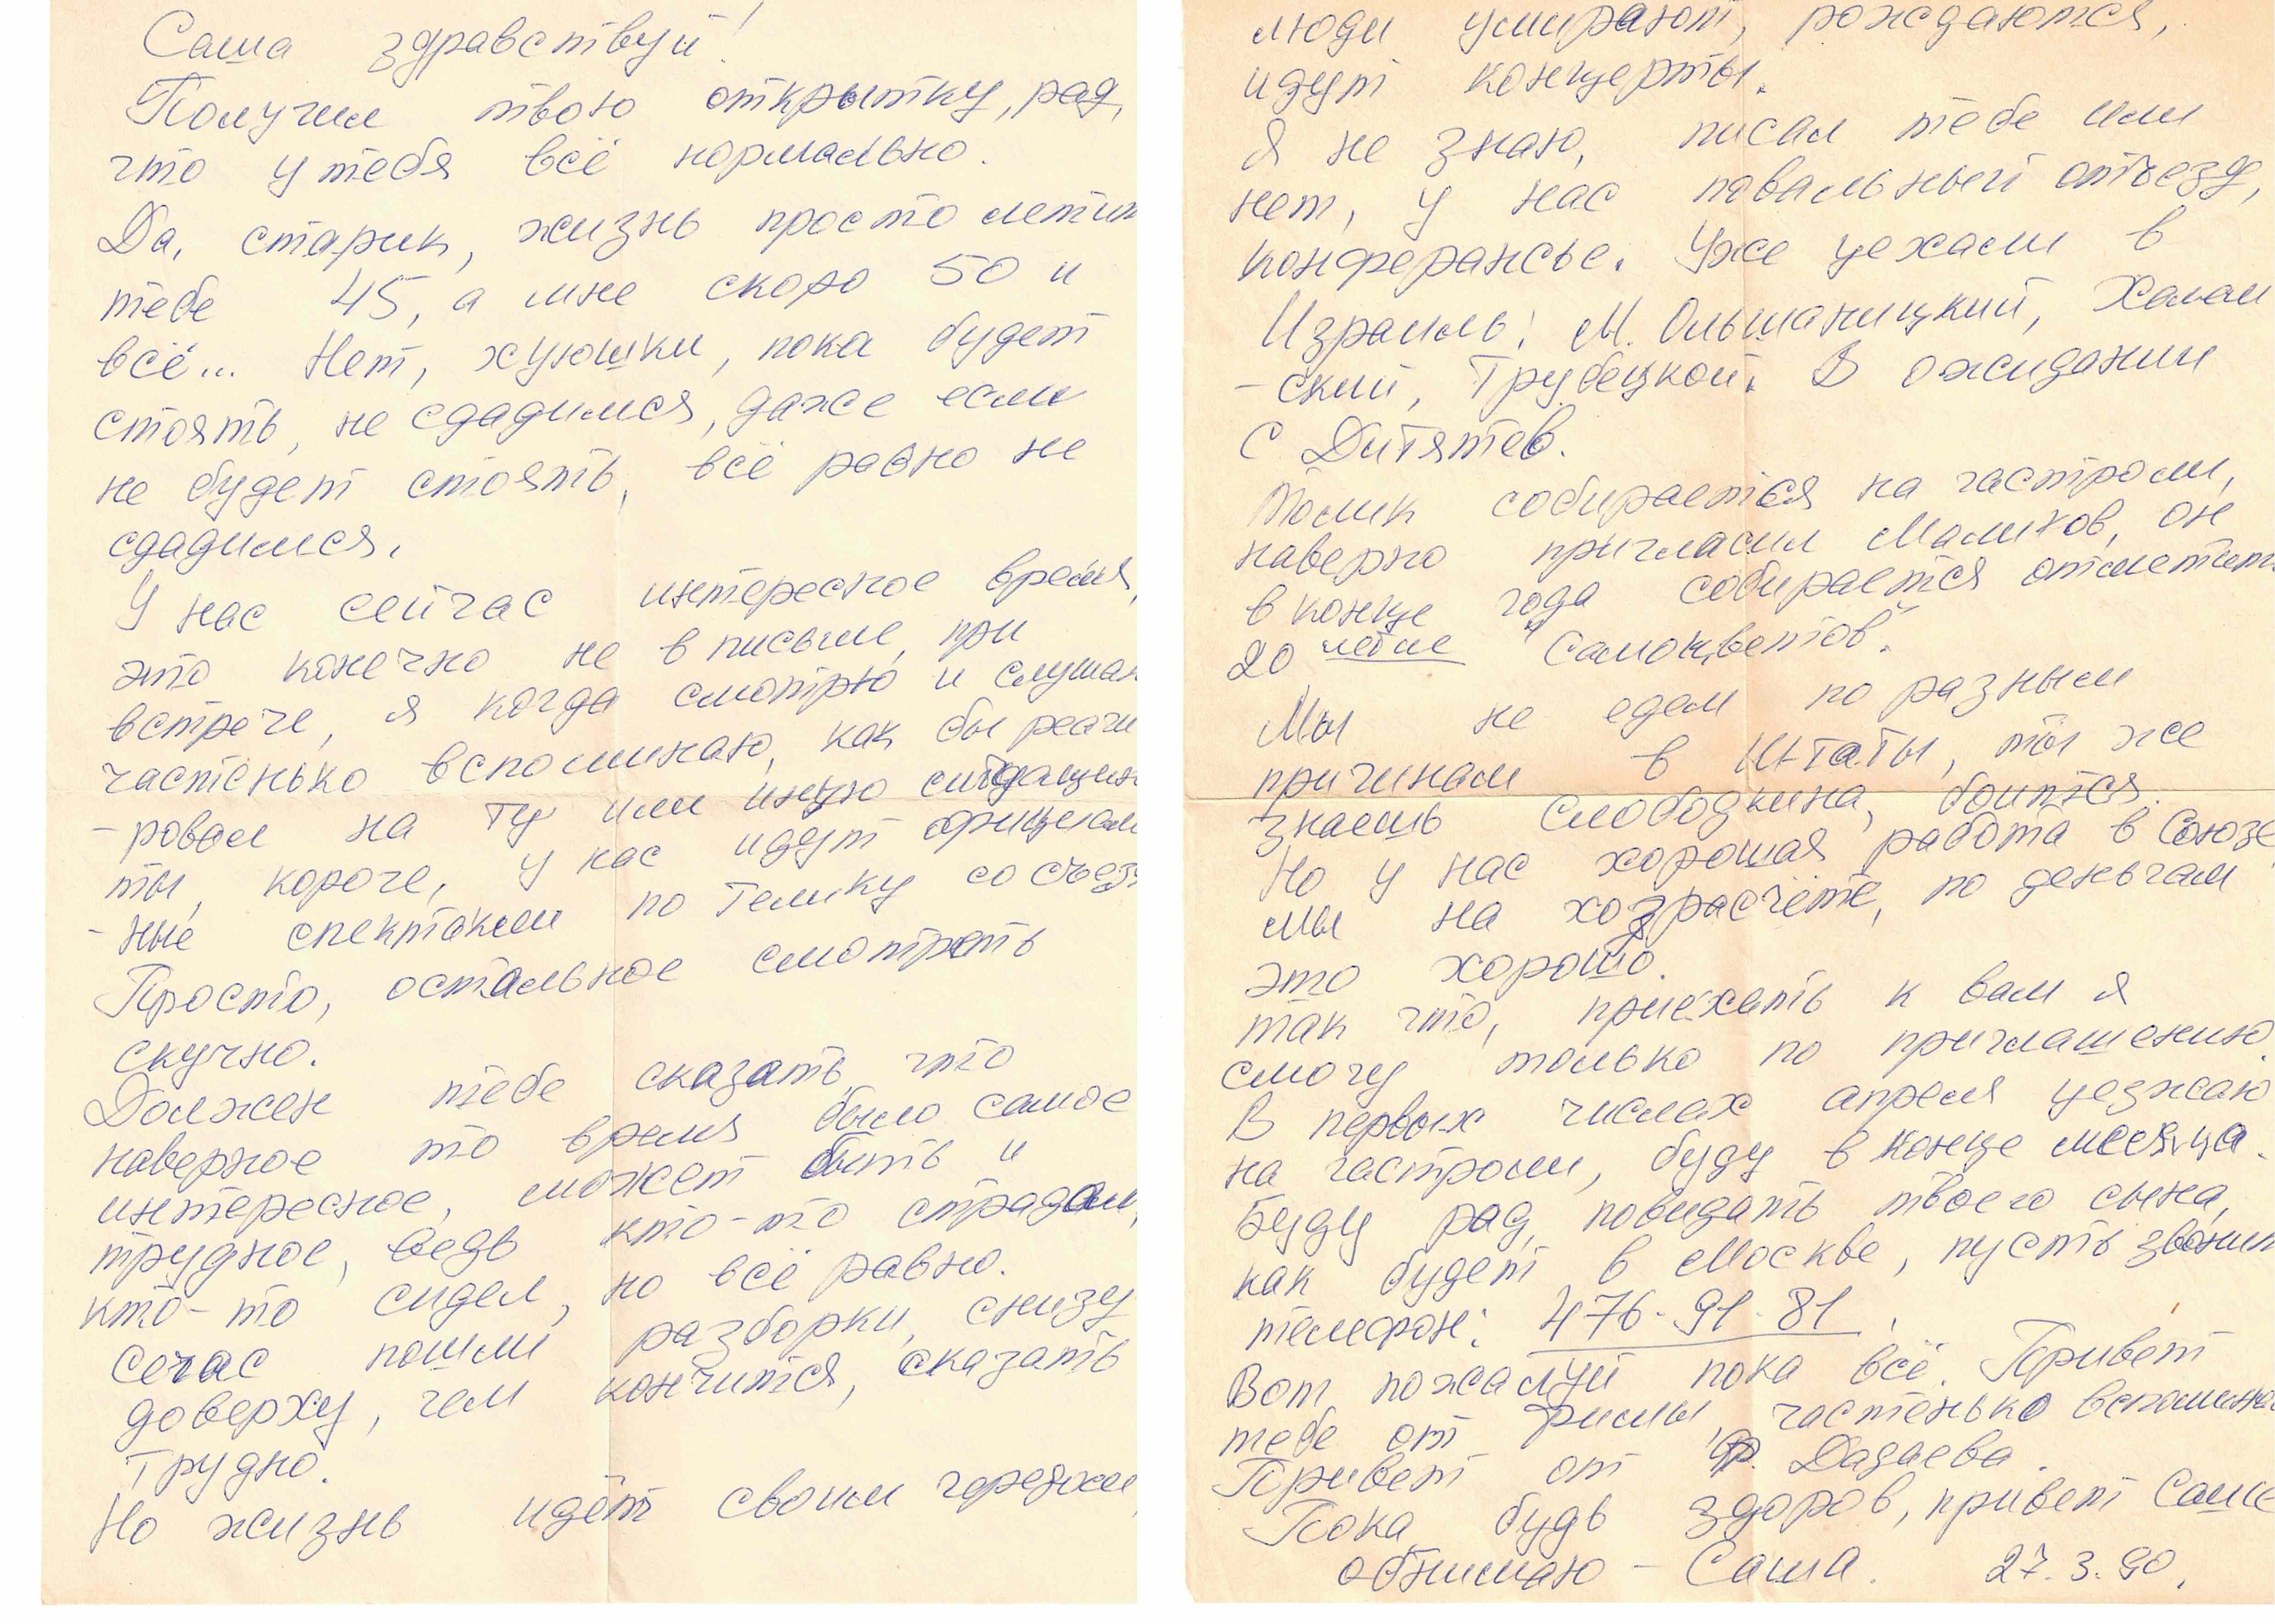 Саша здравствуй!
Получил твою открытку, рад,
что у тебя всё нормально.
Да, старик, жизнь просто летит
тебе 45, а мне скоро 50 и
всё... Нет, хуюшки, пока будет
стоять, не сдадимся, даже если
не будет стоять, всё равно не
сдадимся.
У нас сейчас интересное время,
это конечно не в письме, при
встрече, я когда смотрю и слушаю
частенько вспоминаю, как бы реаги
-ровал на ту или иную ситуацию
ты, короче, у нас идут официаль
-ные спектакли по телику со съезд
Просто, остальное смотреть
скучно.
Должен тебе сказать, что
наверное то время было самое
интересное, может быть и
трудное, ведь кто-то страдал,
кто-то сидел, но всё равно.
Сечас пошли разборки, снизу
доверху, чем кончится, сказать
трудно.
Но жизнь идёт своим чередом,
люди умирают, рождаются,
идут концерты.
Я не знаю, писал тебе или
нет, у нас повальный отъезд,
конферансье. Уже уехали в
Израиль: М. Ольшаницкий, Халам
-ский, Трубецкой. В ожидании
С Дитятев.
Толик собирается на гастроли,
наверно пригласил Маликов, он
в конце года собирается отметить
20 летие "Самоцветов".
Мы не едем по разным
причинам в Штаты, ты же
знаешь Слободкина, боится.
Но у нас хорошая работа в Союзе
мы на хозрасчёте, по деньгам
это хорошо.
так что, приехать к вам я
смогу только по приглашению.
В первых числах апреля уезжаю
на гастроли, буду в конце месяца.
Буду рад, повидать твоего сына,
как будет в Москве, пусть звонит
телефон: 476-91-81.
Вот пожалуй пока всё. Привет
тебе от Риммы, частенько вспомина
Привет от Ф. Дадаева.
Пока, будь здоров, привет Саше
обнимаю - Саша. 27.3.90.